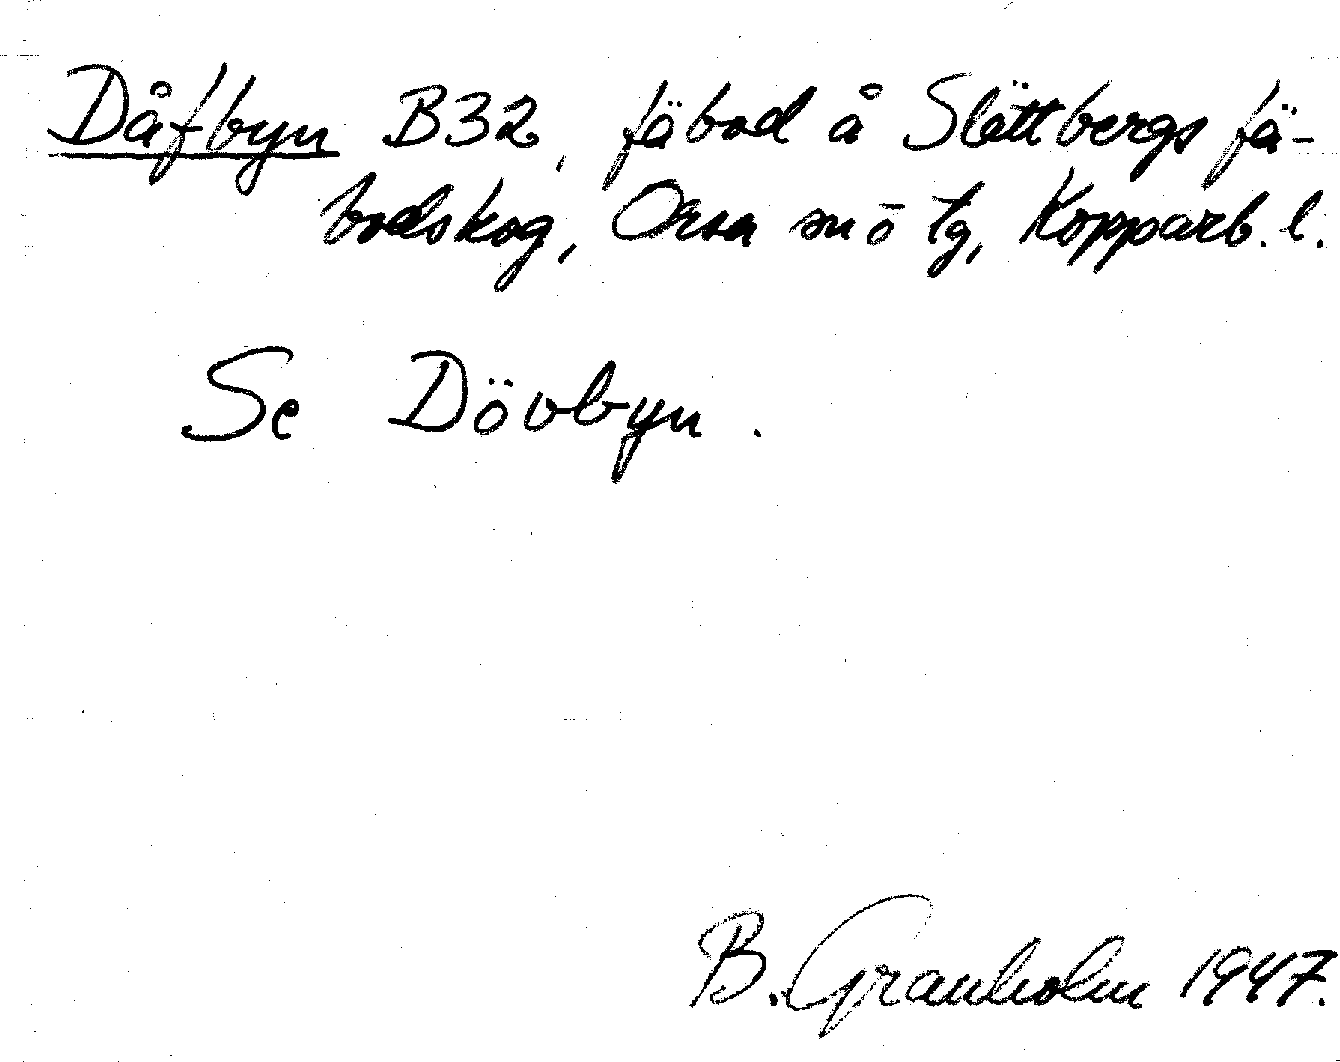 Dåfbyn B32, fäbod å Slättbergs fä-
bodskog, Orsa sn ō tg, Kopparb. l.
Se Dövbyn.
B. Granholm 1947.